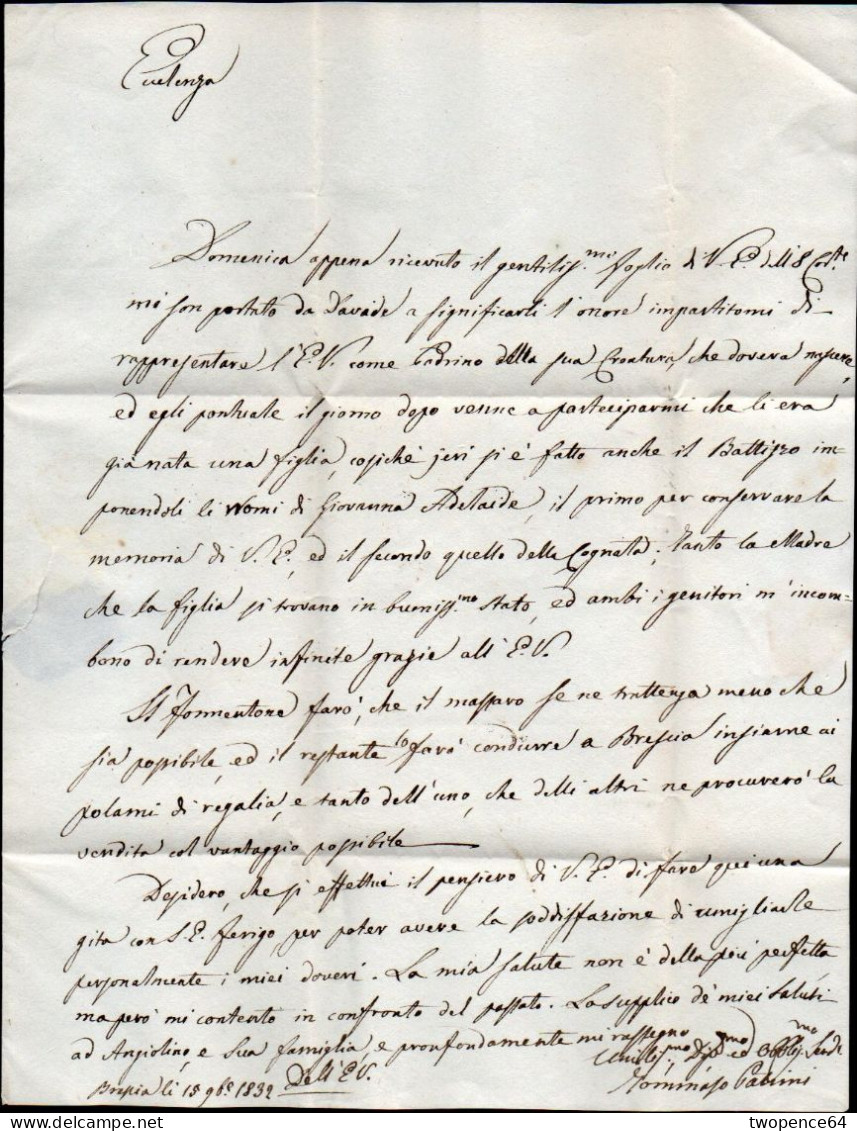 Eccelenza
Domenica appena ricevuto il gentiliss.mo foglio di V.E. delli 8 Cor.te
mi son portato da Davide a significarli l'onore impartitomi di
rappresentare l'E.V. come Padrino della sua Creatura, che doveva nascere,
ed egli pontuale il giorno dopo venne a parteciparmi che li era
già nata una figlia, cosichè jeri si è fatto anche il Battizzo im-
ponendoli li Nomi di Giovanna Adelaide, il primo per conservare la
memoria di V.E., ed il secondo quello della Cognata; tanto la Madre
che la figlia si trovano in buoniss.mo stato, ed ambi i genitori m'incom-
bono di rendere infinite grazie all'E.V.
Il Formentone farò, che il massaro se ne trattenga meno che
sia possibile, ed il restante lo farò condurre a Brescia insieme ai
polami di regalia, e tanto dell'uno, che delli altri ne procurerò la
vendita col vantaggio possibile
Desidero, che si effettui il pensiero di V.E. di fare qui una
gita con S.E. Ferigo, per poter avere la soddisfazione di umigliarle
personalmente i miei doveri. La mia salute non è della più perfetta
ma però mi contento in confronto del passato. La supplico de' miei saluti
ad Angiolino, e Sua famiglia, e profondamente mi rassegno
Dell'E.V.
Umilis.mo Dip.mo ed Obblig.mo
Brescia li 15 9b.e 1832
Tommaso
twopence64